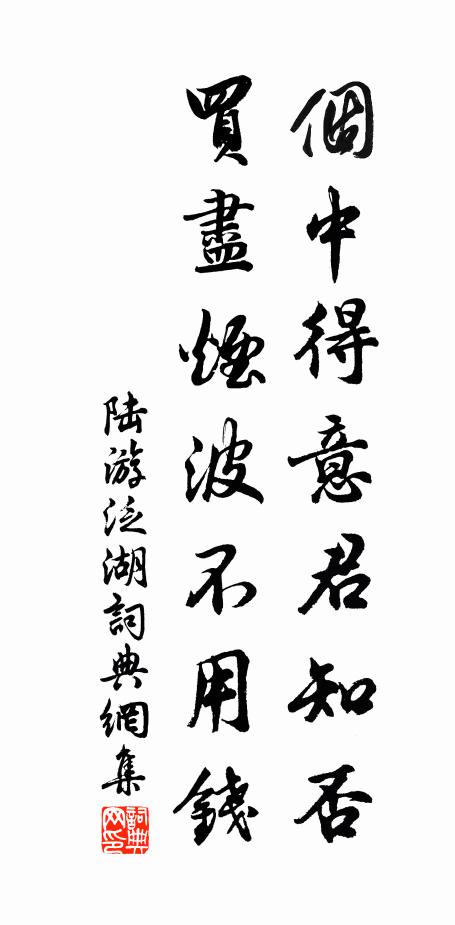 個中得意君知否
買盡煙波不用錢
陸游泛湖詞典網集
詞典网印